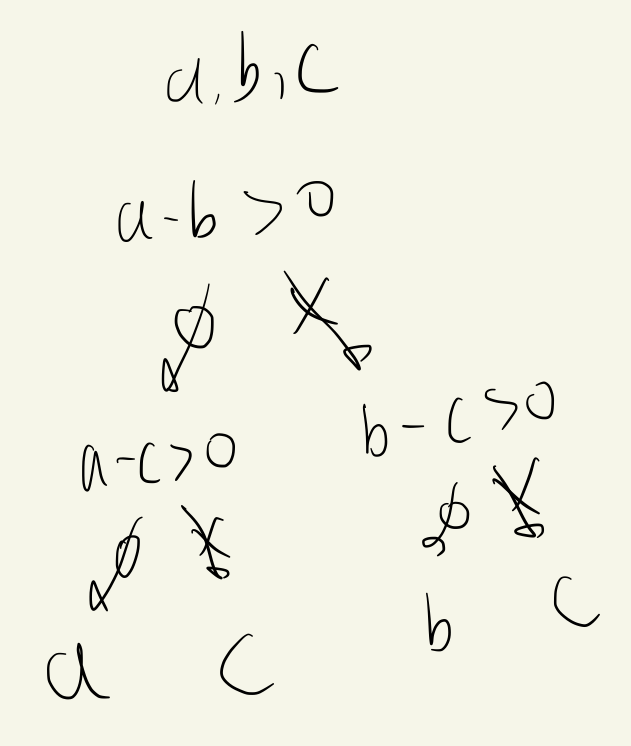 a, b, c
a - b > 0
O X
b - c > 0
a - c > 0
O X
O X
a c b c